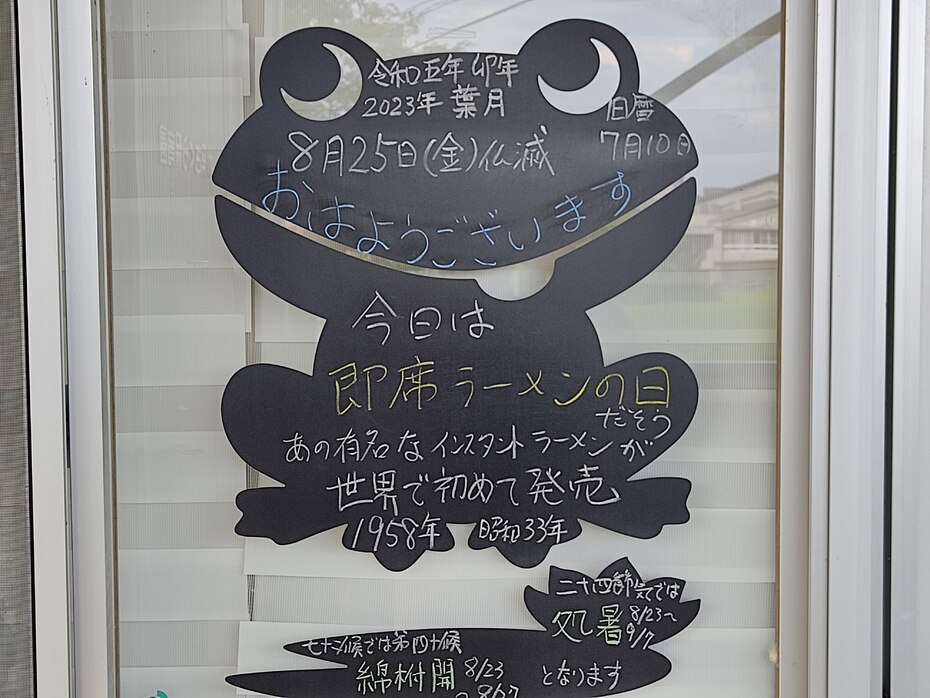 令和五年 卯年
2023年 葉月
旧暦
8月25日(金)仏滅
7月10日
おはようございます
今日は
即席ラーメンの日
だそう
あの有名なインスタントラーメンが
世界で初めて発売
1958年 昭和33年
二十四節気では
処暑 8/23〜
9/7
七十二候では第四十候
綿柎開 8/23
〜8/27
となります